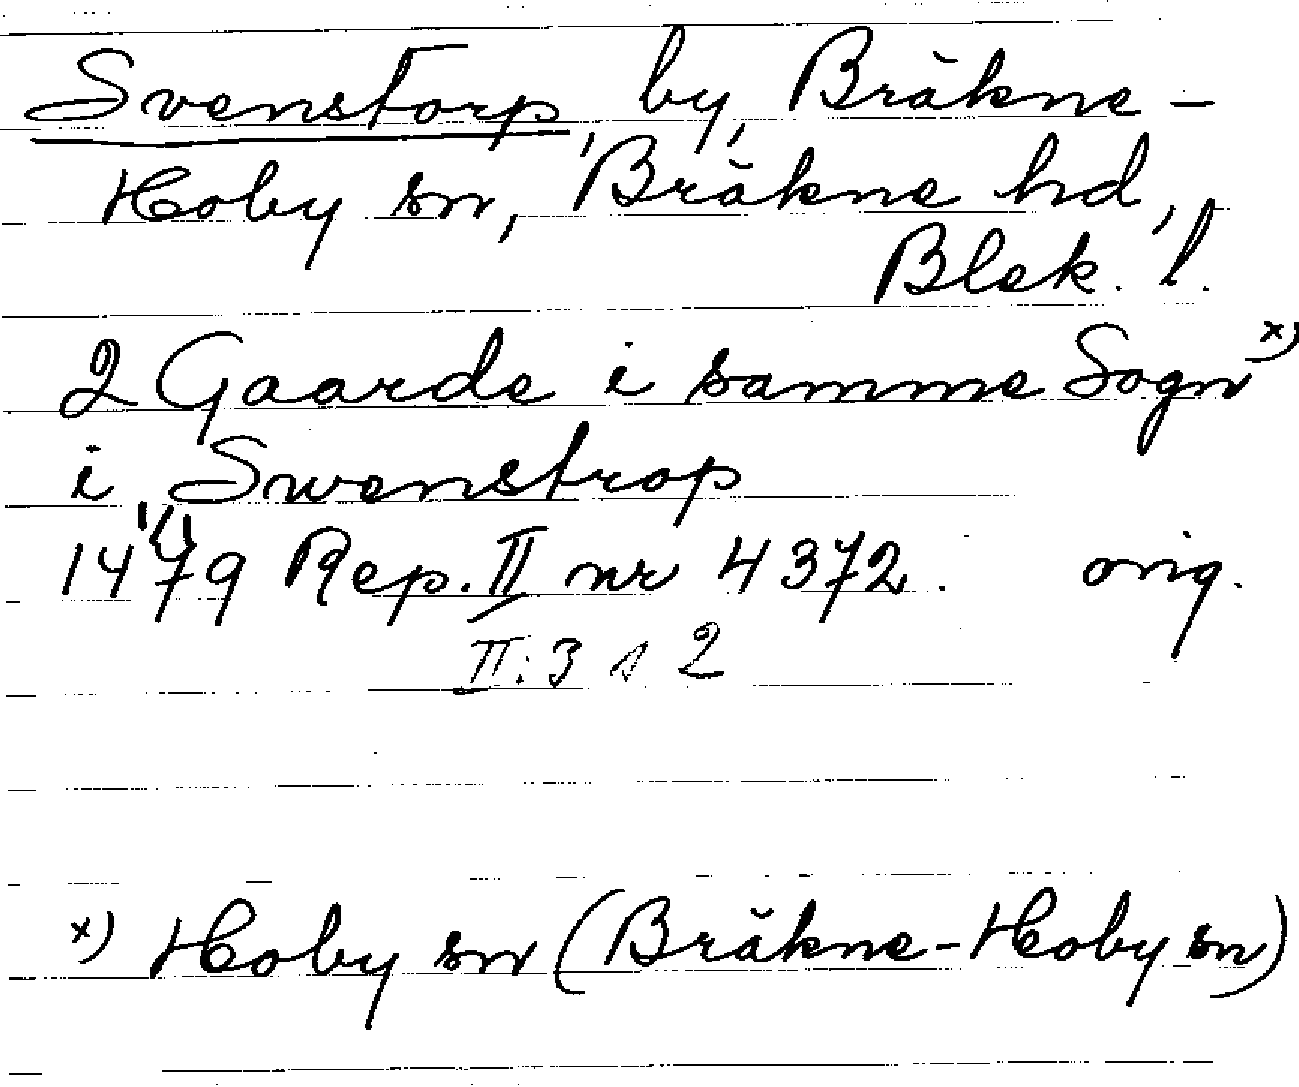 Svenstorp, by, Bräkne-
Hoby sn, Bräkne hd,
Blek. l.
2 Gaarde i samme Sogn x)
i Swenstrop
14 1/1 79 Rep. II nr 4372. orig.
II:3 s 2
x) Hoby sn (Bräkne-Hoby sn)